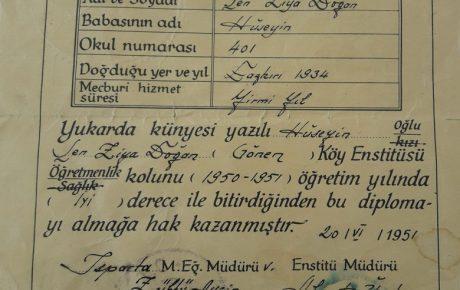 Adı ve Soyadı Şen Ziya Doğan
Babasının adı Hüseyin
Okul numarası 401
Doğduğu yer ve yıl 1934
Mecburi hizmet süresi Yirmi Yıl
Yukarda künyesi yazılı Hüseyin Oğlu kızı
Şen Ziya Doğan ( Gönen ) Köy Enstitüsü
Öğretmenlik Sağlık kolunu ( 1950-1951 ) öğretim yılında
( İyi ) derece ile bitirdiğinden bu diploma-
yı almağa hak kazanmıştır. 20/VI/1951
Isparta M.Eğ. Müdürü v. Enstitü Müdürü